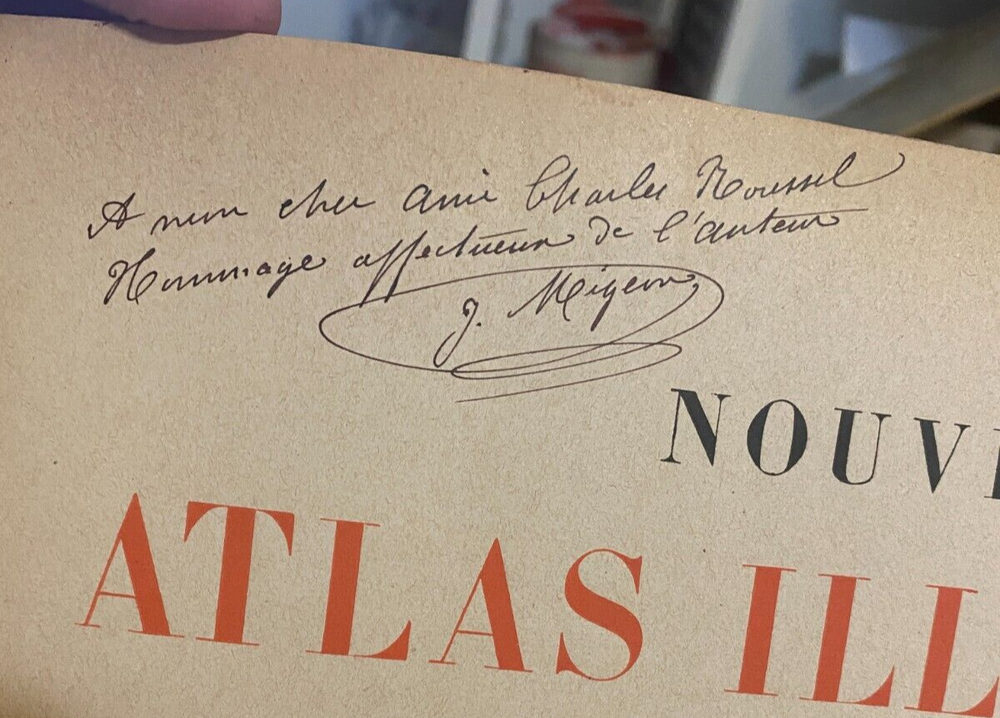 A mon cher ami Charles Roussel
Hommage affectueux de l'auteur
J. Migeon
NOUV
ATLAS ILL